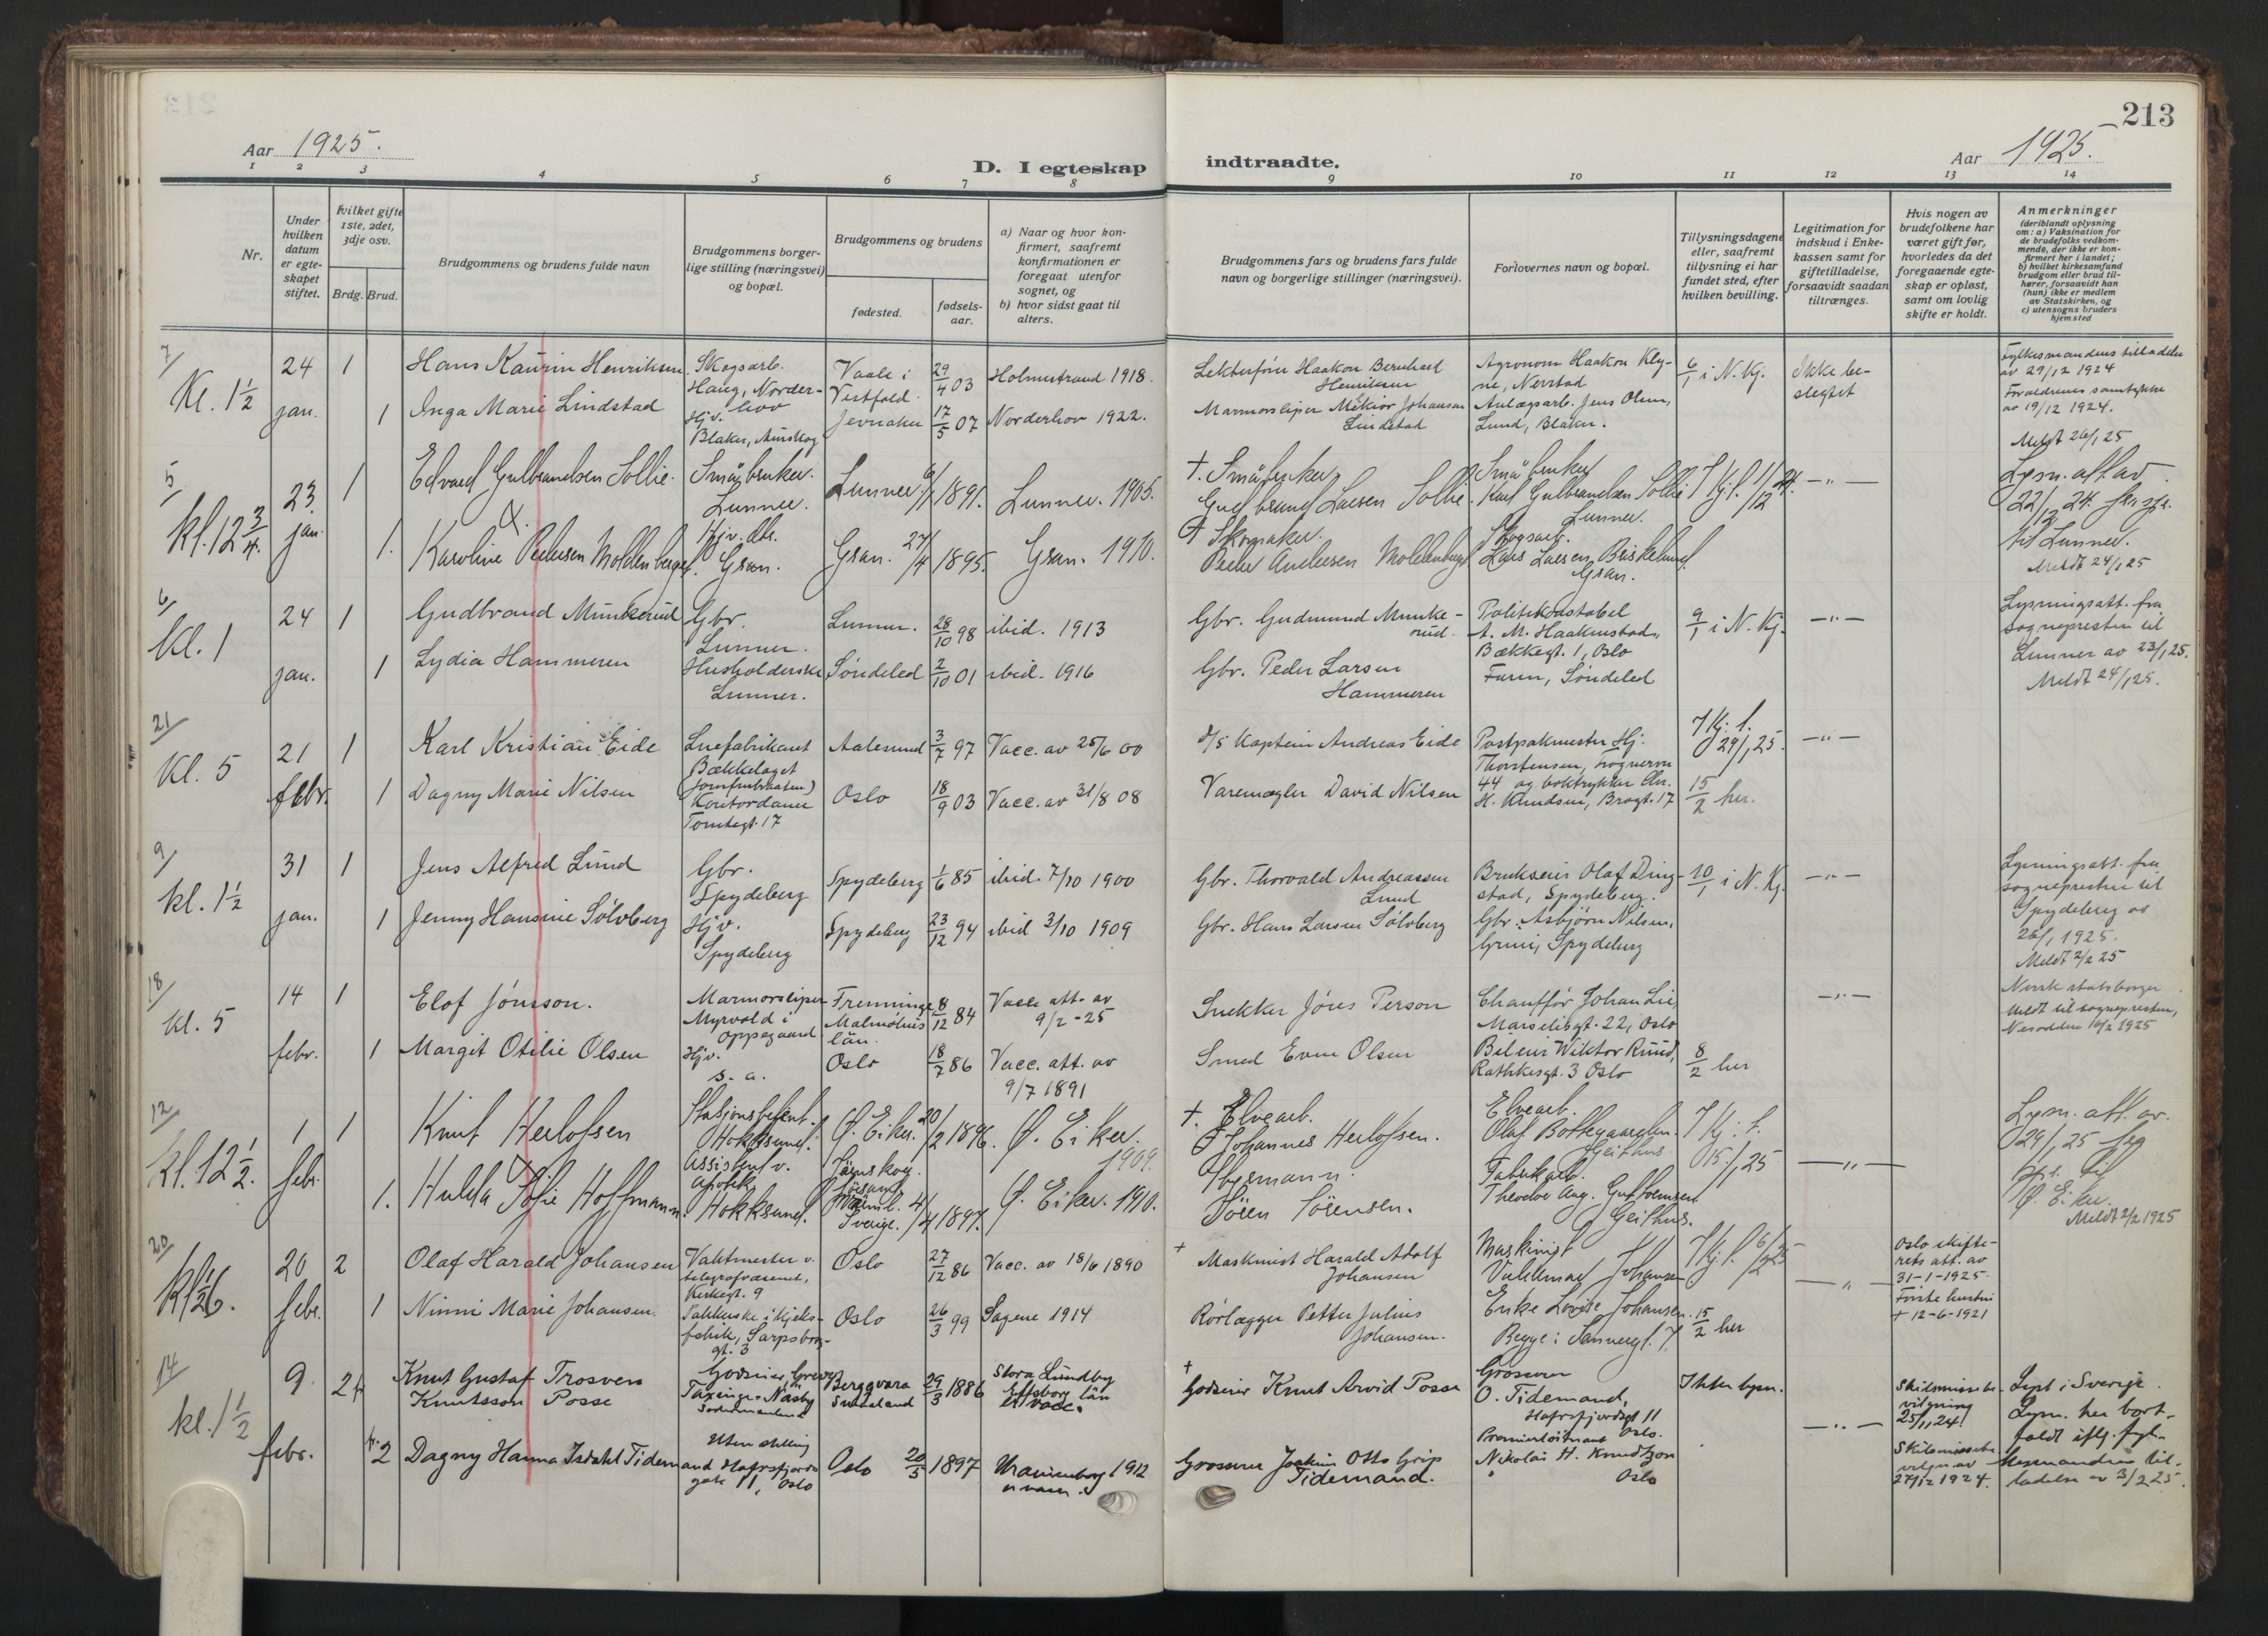 213
Aar 1925.
D. I egteskap indtraadte.
Aar 1925.
1 2 3 4 5 6 7 8 9 10 11 12 13 14
Nr.
Under hvilken datum er egteskapet stiftet.
hvilket gifte 1ste, 2det, 3dje osv.
Brdg. Brud.
Brudgommens og brudens fulde navn
Brudgommens borgerlige stilling (næringsvei) og bopæl.
Brudgommens og brudens
fødested.
fødselsaar.
a) Naar og hvor konfirmert, saafremt konfirmationen er foregaat utenfor sognet, og
b) hvor sidst gaat til alters.
Brudgommens fars og brudens fars fulde navn og borgerlige stillinger (næringsvei).
Forlovernes navn og bopæl.
Tillysningsdagene eller, saafremt tillysning ei har fundet sted, efter hvilken bevilling.
Legitimation for indskud i Enkekassen samt for giftetilladelse, forsaavidt saadan tiltrænges.
Hvis nogen av brudefolkene har været gift før, hvorledes da det foregaaende egteskap er opløst, samt om lovlig skifte er holdt.
Anmerkninger
(deriblandt oplysning om: a) Vaksination for de brudefolks vedkommende, der ikke er konfirmert her i landet; b) hvilket kirkesamfund brudgom eller brud tilhører, forsaavidt han (hun) ikke er medlem av Statskirken, og c) utensogns bruders hjemsted
7/ Kl. 1½
24 jan.
1
Hans Kaurin Henriksen
Skogsarb.
Haug, Norderhov
Vaale i Vestfold.
29/4 03
Holmestrand 1918.
Haakon Bernhard Henriksen
Agronom Haakon Klyne, Nerstad
6/1 i N. Kj.
Ikke beslegtet
Fylkesmandens tilladelse av 29/12 1924
1
Inga Marie Lindstad
Hjv.
Blaker, Aurskog
Jevnaker
17/5 07
Norderhov 1922.
Marmorsliper Melkior Johansen Lindstad
Anlægsarb. Jens Olsen, Lund, Blaker.
Forældrenes samtykke av 19/12 1924.
Meldt 26/1 25
5/ kl. 12¾.
23. jan.
1
Edvard Gulbrandsen Sollie.
Småbruker.
Lunner.
Lunner.
1891.
Lunner. 1905.
† Småbruker
Gulbrand Larsen Sollie.
Småbruker
Karl Gulbrandsen Sollie
Lunner.
I Kj. f. 11/12 24.
— „ —
Lysn. att. av
22/12 24. fra spr.
til Lunner.
Meldt 24/1 25
1.
Karoline Pedersen Moldenberget.
Hjv. dtr.
Gran.
Gran.
27/4 1895.
Gran. 1910.
† Skomaker.
Peder Andersen Moldenberget
Skogsarb.
Lars Larsen, Briskelund
Gran.
6/ Kl. 1
24 jan.
1
Gudbrand Munkerud
Gbr.
Lunner.
Lunner.
28/10 98
ibid. 1913
Gbr. Gudmund Munkerud.
Politikonstabel
A. M. Haakenstad,
Bækkegt. 1, Oslo
9/1 i N. Kj.
— „ —
Lysningsatt. fra
sognepresten til
Lunner av 23/1 25.
Meldt 24/1 25.
1
Lydia Hammeren
Husholderske
Lunner.
Søndeled
2/10 01
ibid. 1916
Gbr. Peder Larsen
Hammeren
Søndeled
21/ Kl. 5
21 febr.
1
Karl Kristian Eide
Luefabrikant
Bækkelaget
Aalesund
3/7 97
Vacc. av 25/6 00
Kaptein Andreas Eide
Postpakmester Hj.
Thorstensen, Sognsvn
44 og boktrykker Chr.
H. Knudsen, Bragt. 17
I Kj. f.
29/1 25.
— „ —
1
Dagny Marie Nilsen
Kontordame
Tomtegt. 17
Oslo
18/9 03
Vacc. av 31/8 08
Varemægler David Nilsen
15/2 her.
9/ kl. 1½
31 jan.
1
Jens Alfred Lund
Gbr.
Spydeberg
Spydeberg
1/6 85
ibid. 7/10 1900
Gbr. Thorvald Andreassen
Lund
Brukseier Olaf Dingstad, Spydeberg.
10/1 i N. Kj.
— „ —
Lysningsatt. fra
sognepresten til
Spydeberg av
26/1 1925.
Meldt 2/2 25
1
Jenny Hansine Sølvberg
Hjv.
Spydeberg
Spydeberg
23/12 94
ibid 3/10 1909
Gbr. Hans Larsen Sølvberg
Gbr. Asbjørn Nilsen,
Gruni, Spydeberg
18/ kl. 5
14 febr.
1
Elof Jönsson.
Marmorsliper
Myrvold i
Oppegaard
Fremminge
Malmøhus
län.
8/12 84
Vacc. att. av
9/2 - 25
Snekker Jöns Person
Chauffør Johan Lie
Marselisgt. 22, Oslo
— „ —
Norsk statsborger
Meldt til sognepresten,
Nesodden 16/2 1925
1
Margit Otilie Olsen
Hjv.
s. a.
Oslo
18/7 86
Vacc. att. av
9/7 1891
Smed Even Olsen
Bileier Wiktor Ruud,
Rathkesgt. 3 Oslo
8/2 her
12/ kl. 12½.
1 febr.
1
Knut Herlofsen
Stasjonsbetjent.
Hokksund.
Ø. Eiker.
20/2 1896.
Ø. Eiker.
1909.
† Elvearb.
Johannes Herlofsen.
Elvearb.
Olaf Bottegaarden.
Geithus.
I Kj: f.
15/1 25
— „ —
Lysn. att. av.
29/1 25 fra
spr. til
Ø. Eiker.
Meldt 2/2 1925
1.
Hulda Sofie Hoffmann.
Assistent v.
apotek,
Hokksund.
Sverige.
4/4 1897.
Ø. Eiker. 1910.
Sören Sörensen.
Fabrikarb.
Theodor Aug. Gulbrandsen
Geithus.
20/ kl. ½6.
20 febr.
2
Olaf Harald Johansen
Vaktmester v.
telegrafvæsenet,
Kirkegt. 9
Oslo
27/12 86
Vacc. av 18/6 1890
† Maskinist Harald Adolf
Johansen
Maskinist
Valdemar Johansen
I Kj. f. 6/2 25
— „ —
Oslo skifterets att. av
31-1-1925.
Første hustru
† 12-6-1921
1
Ninni Marie Johansen.
Pakkerske i kjeksfabrik, Sarpsborggt. 3
Oslo
26/3 99
Sagene 1914
Rørlægger Petter Julius
Johansen.
Enke Lovise Johansen.
Begge: Sannergt. 7.
15/2 her
14/ kl. 1½
9 febr.
2
Knut Gustaf Trosvere
Knutsson Posse
Godseier, Greve,
Taxinge-Näsby
Södermanland
Berggvara
Småland
29/3 1886
Stora Lundby
Elfsborg län
er vacc.
† Godseier Knut Arvid Posse
Grosserer
O. Tidemand,
Hafrsfjordsgt 11
Oslo.
Ikke lysn.
— „ —
Skilsmissebevilgning
25/11 24.
Lyst i Sverige.
Lysn. her bortfaldt iflg. fylkesmandens tilladelse av 3/2 25.
2
Dagny Hanna Isdahl Tidemand
Uten stilling
Hafrsfjords
gate 11, Oslo
Oslo
20/5 1897
Uranienborg 1912
er vacc.
Grosserer Joakim Otto Grip
Tidemand.
Premierløitnant
Nikolai H. Knudtzon
Oslo
Skilsmissebevilgn. av
27/12 1924.